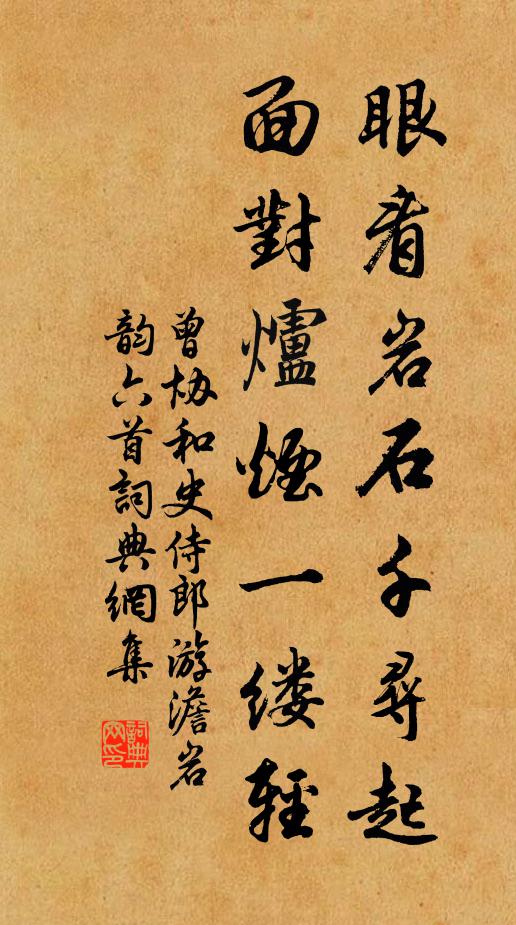 眼看岩石千尋起
面對爐煙一缕輕
曾协和史侍郎游澹岩
韵六首詞典網集
詞典网印